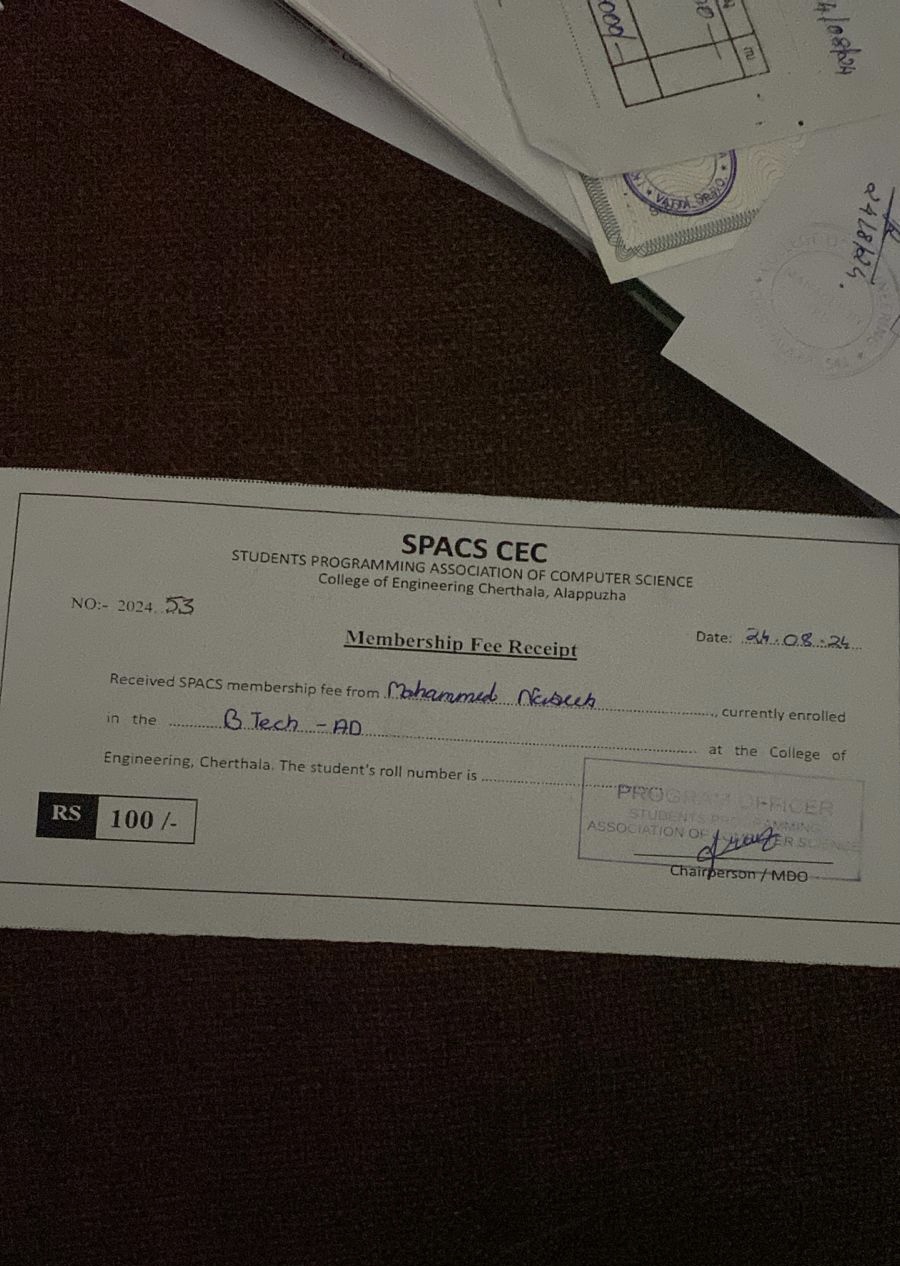 000/-
4/08/24
24/8/24.
SPACS CEC
STUDENTS PROGRAMMING ASSOCIATION OF COMPUTER SCIENCE
College of Engineering Cherthala, Alappuzha
NO:- 2024. 53
Date: 24.08.24
Membership Fee Receipt
Received SPACS membership fee from Mohammed, currently enrolled
in the B Tech - AD at the College of
Engineering, Cherthala. The student's roll number is
PROGRAM OFFICER
STUDENTS PROGRAMMING
ASSOCIATION OF COMPUTER SCIENCE
RS 100 /-
Chairperson / MDO